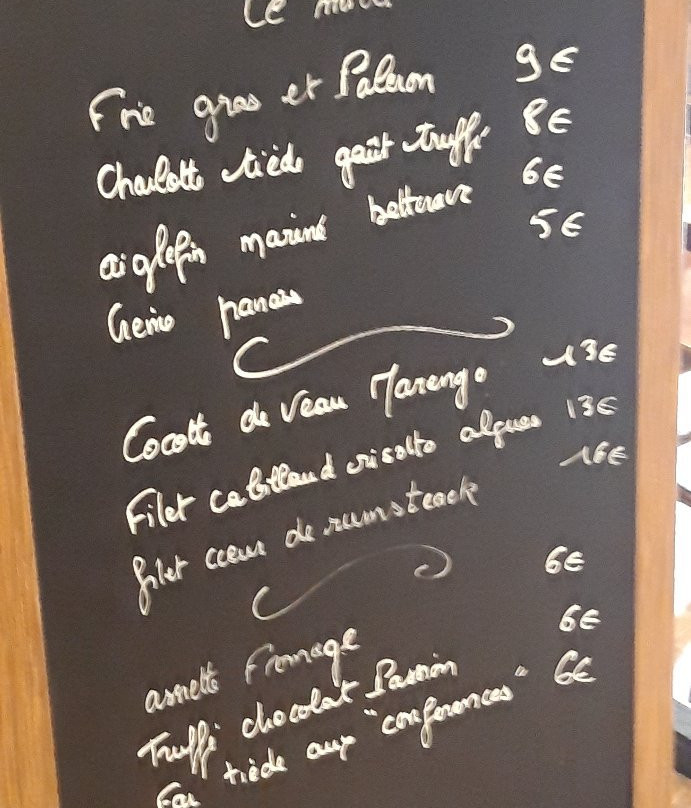 Ce midi
Foie gras et Paleron 9€
Charlotte tiède goût truffé 8€
aiglefin mariné betterave 6€
Crémo panais 5€
Cocotte de Veau Marengo 13€
Filet cabillaud risotto algues 13€
filet cœur de rumsteack 16€
assiette Fromage 6€
Truffé chocolat Passion 6€
Far tiède aux "conferences" 6€